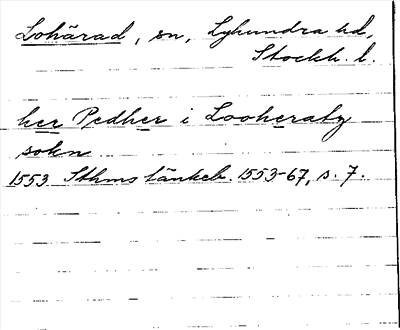 Lohärad, sn, Lyhundra hd,
Stockh. l.
her Pedher i Looheraty
sokn
1553 Sthms tänkeb. 1553-67, s. 7.